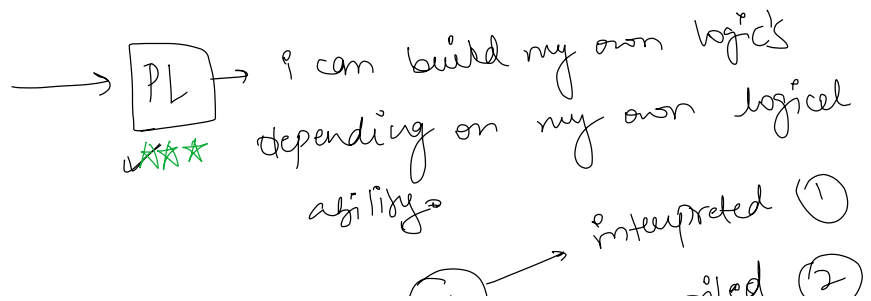 PL
i can build my own logic's
depending on my own logical
ability.
interpreted 1
2